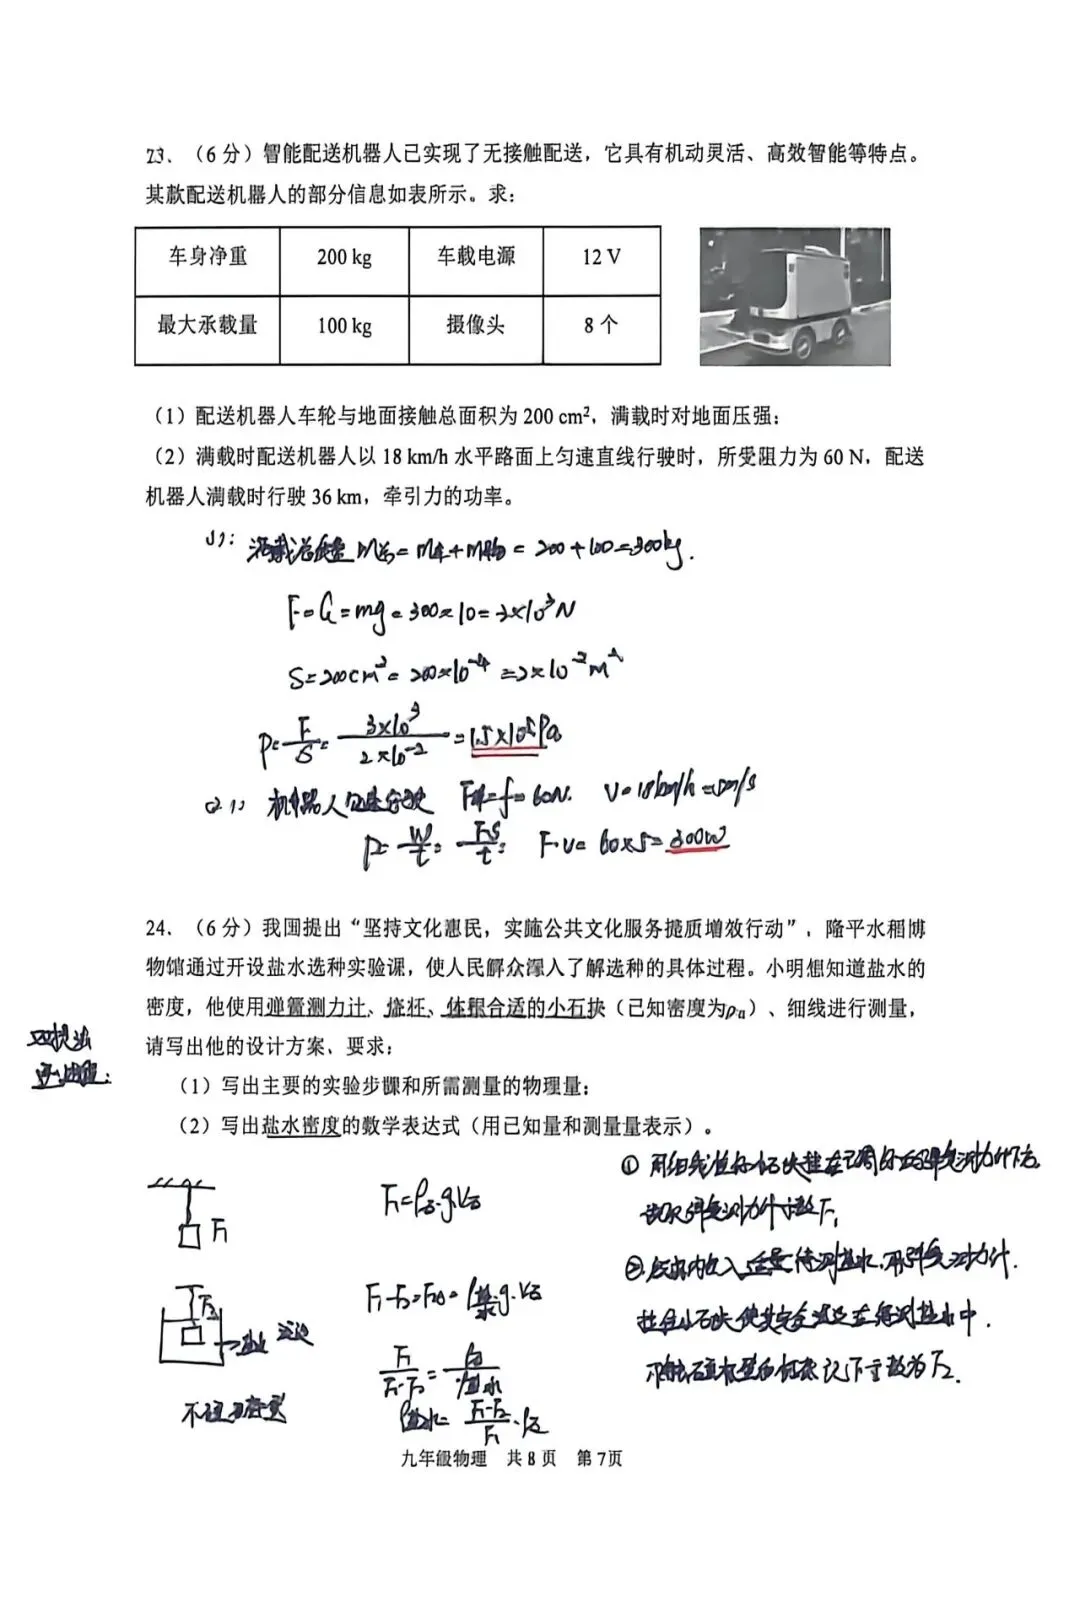 23、（6 分）智能配送机器人已实现了无接触配送，它具有机动灵活、高效智能等特点。
某款配送机器人的部分信息如表所示。求：
车身净重 200 kg 车载电源 12 V
最大承载量 100 kg 摄像头 8 个
（1）配送机器人车轮与地面接触总面积为 200 cm²，满载时对地面压强；
（2）满载时配送机器人以 18 km/h 水平路面上匀速直线行驶时，所受阻力为 60 N，配送
机器人满载时行驶 36 km，牵引力的功率。
(1): 满载总质量 M总 = m车 + m物 = 200 + 100 = 300kg.
F=G=mg=300×10=3×10³N
S=200cm²=200×10⁻⁴=2×10⁻²m²
P=F/S=3×10³/2×10⁻²=1.5×10⁵Pa
(2): 机器人匀速行驶 F牵=f=60N. V=18km/h=5m/s
P=W/t=FS/t=F·v=60×5=300W
24、（6 分）我国提出“坚持文化惠民，实施公共文化服务提质增效行动”，隆平水稻博
物馆通过开设盐水选种实验课，使人民群众深入了解选种的具体过程。小明想知道盐水的
密度，他使用弹簧测力计、烧杯、体积合适的小石块（已知密度为ρ石）、细线进行测量，
请写出他的设计方案、要求：
（1）写出主要的实验步骤和所需测量的物理量；
（2）写出盐水密度的数学表达式（用已知量和测量量表示）。
F₁
F₂
盐水
F₁=ρ石·gV石
F₁-F₂=F浮=ρ盐水g·V石
F₁/F₁-F₂=ρ石/ρ盐水
ρ盐水=F₁-F₂/F₁·ρ石
① 用细线拴好小石块挂在已调好的弹簧测力计下方,
读取弹簧测力计示数F₁
②烧杯内倒入适量待测盐水,用弹簧测力计
拉住小石块使其完全浸没在待测盐水中.
记下示数为F₂.
九年级物理 共 8 页 第 7页